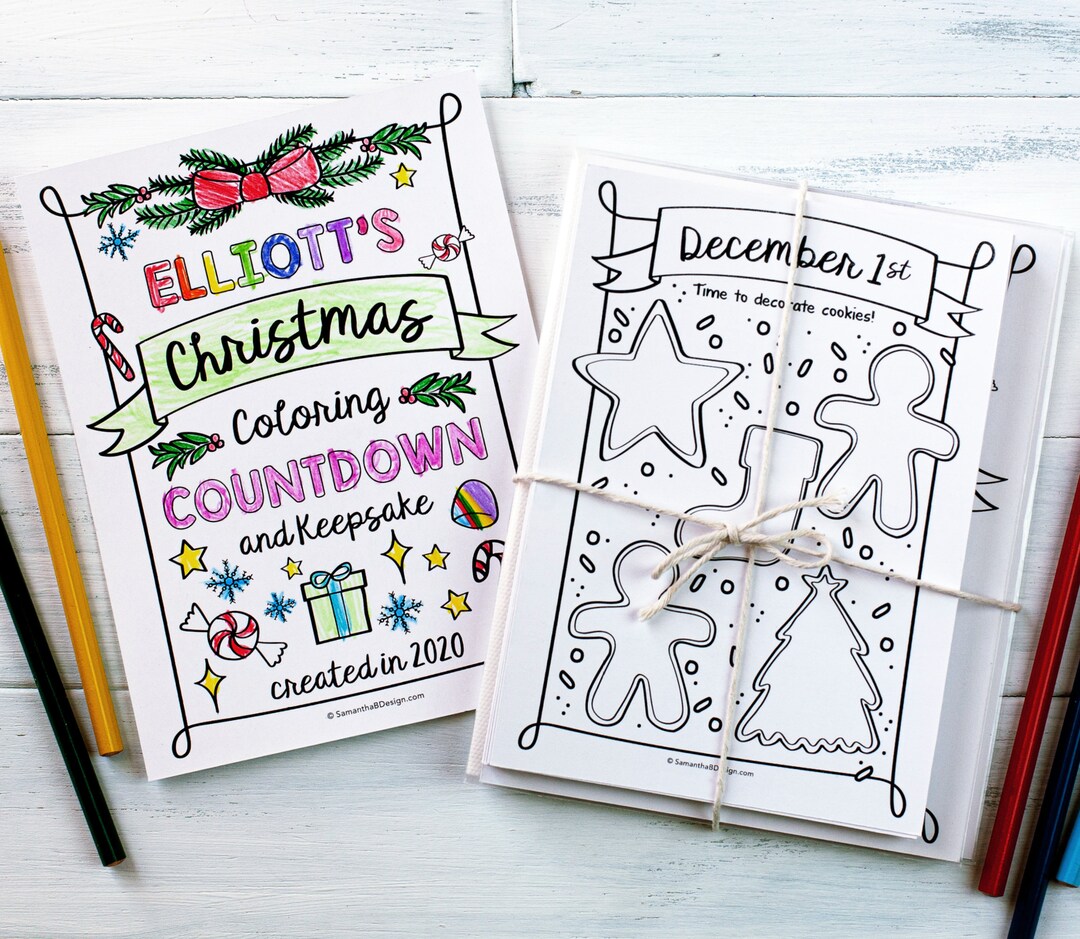 ELLIOTT'S
Christmas
Coloring
COUNTDOWN
and Keepsake
created in 2020
© SamanthaBDesign.com
December 1st
Time to decorate cookies!
© SamanthaBDesign.com